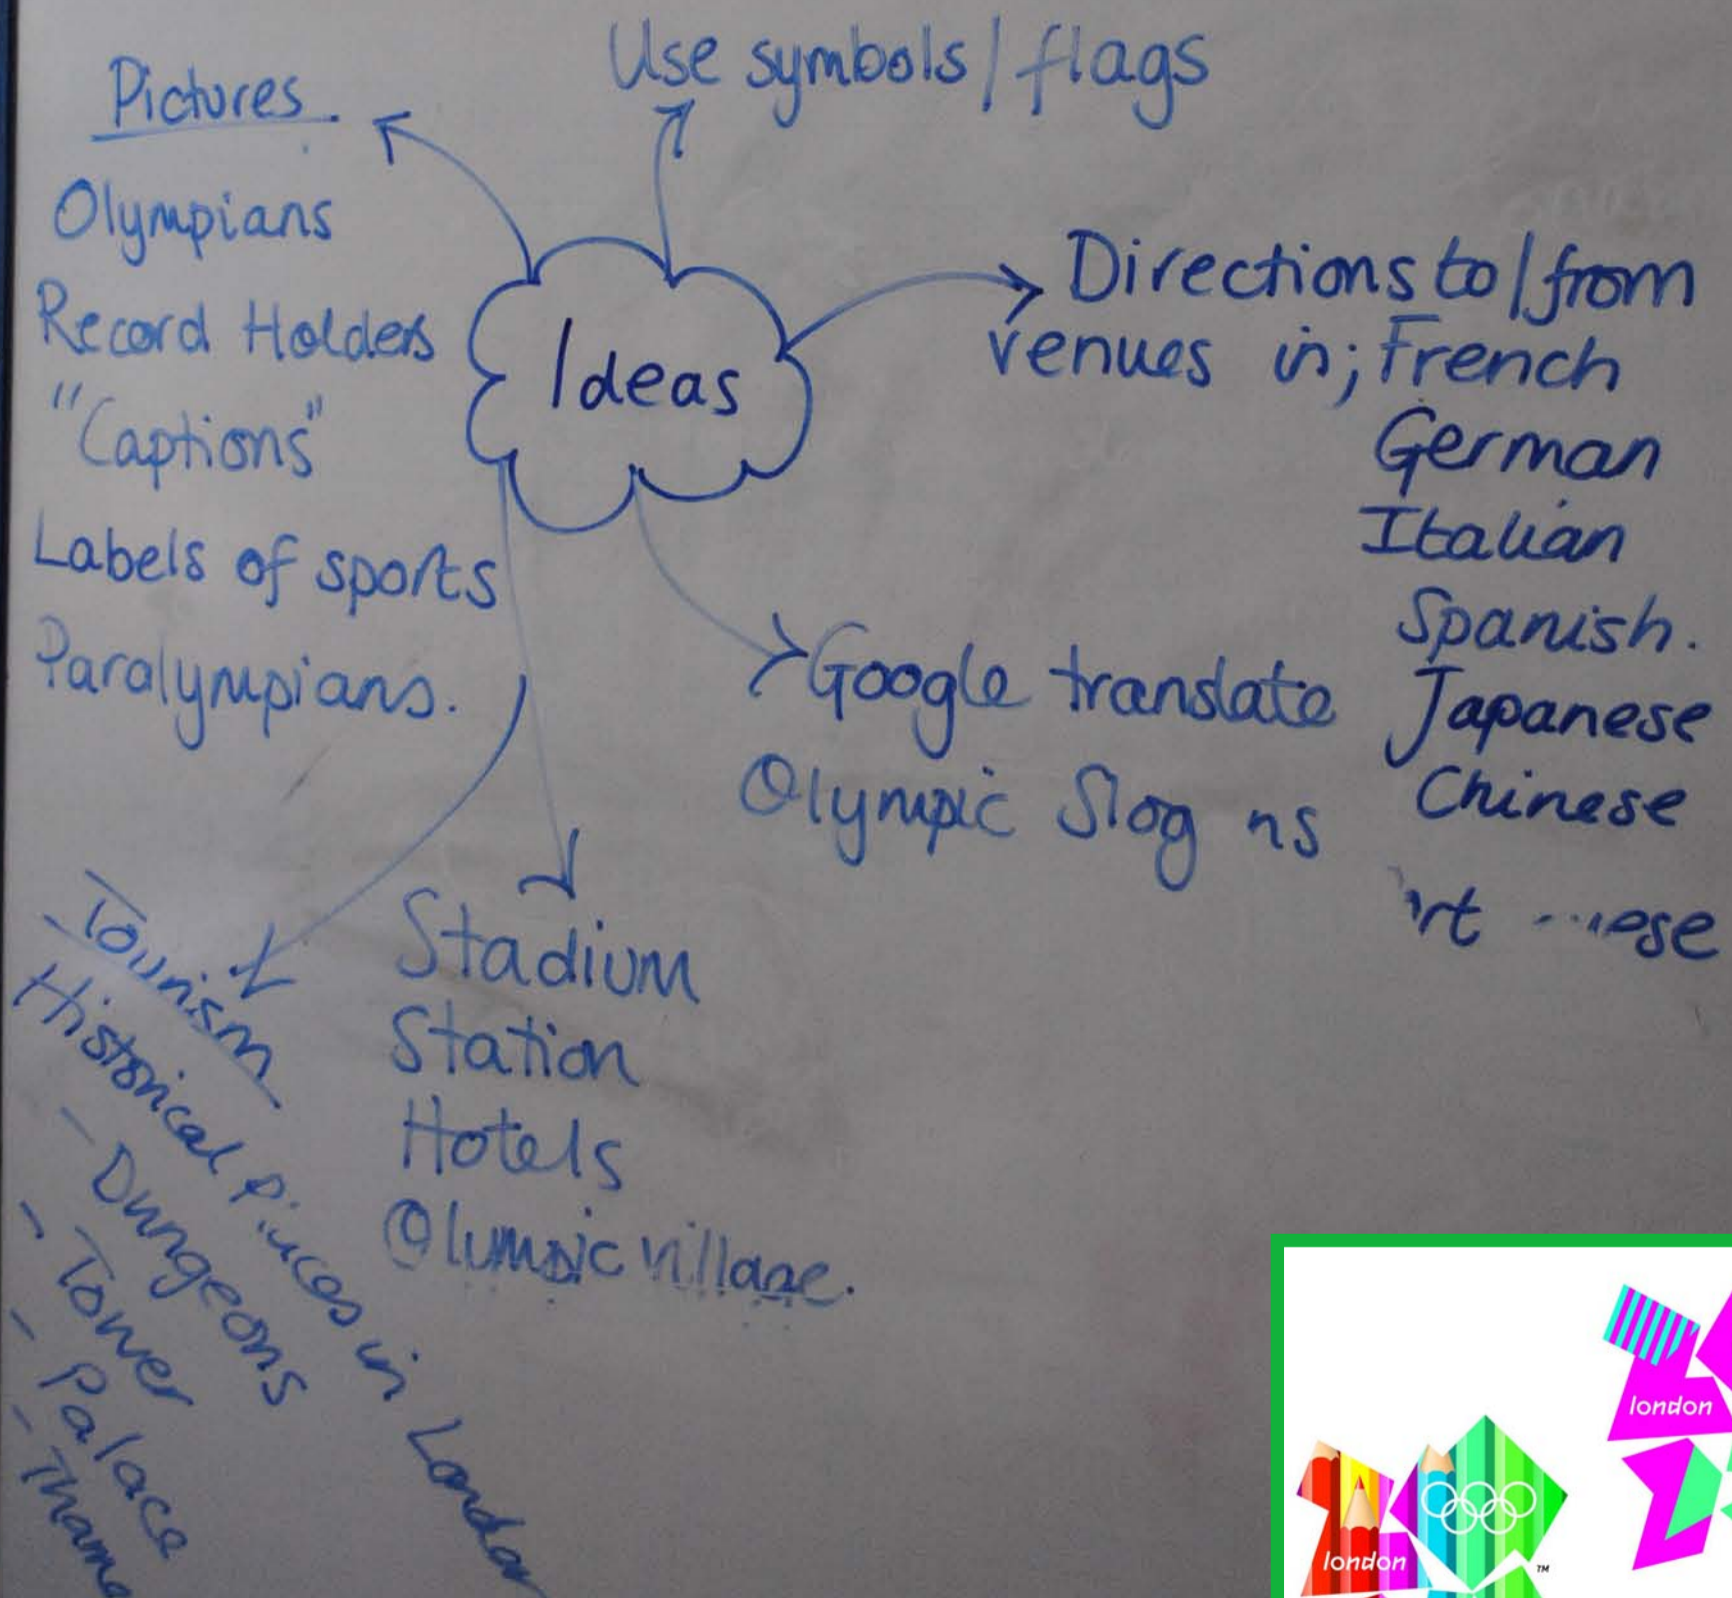 Use symbols / flags
Pictures
Olympians
Record Holders
"Captions"
Labels of sports
Paralympians.
Ideas
Directions to / from
venues in; French
German
Italian
Spanish.
Japanese
Chinese
Google translate
Olympic Slog ns
Stadium
Station
Hotels
Olympic village.
Tourism
Historical Places in London
- Dungeons
- Tower
- Palace
london
london
TM